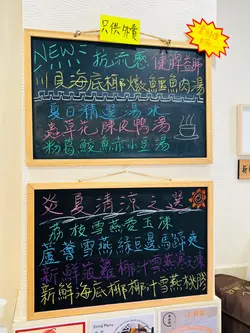 只供外賣
NEW!! 抗流感 健脾益肺
川貝海底椰燉鱷魚肉湯
夏日精選湯水
蟲草花陳皮鴨湯
粉葛鯪魚赤小豆湯
炎夏清涼之選
荔枝雪燕愛玉凍
蘆薈雪燕綠豆邊馬蹄爽
新鮮菠蘿椰汁雪燕
新鮮海底椰椰汁雪燕桃膠